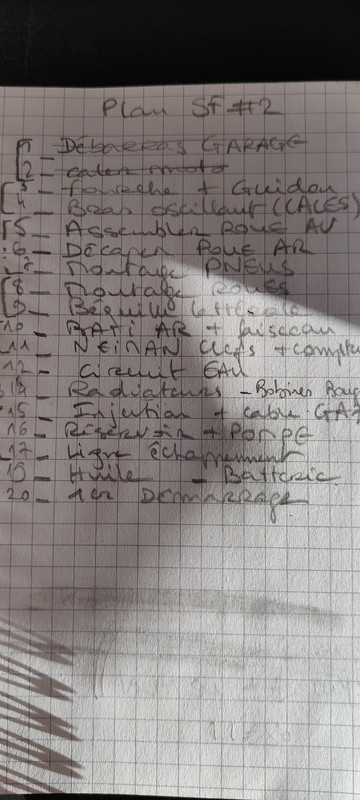 Plan SF #2
1 - Débarras GARAGE
2 - caler moto
3 - Fourche + Guidon
4 - Bras oscillant (CALES)
5 - Assembler ROUE AV
6 - Décaper ROUE AR
7 - Montage PNEUS
8 - Montage ROUES
9 - Béquille Latérale
10 - BATI AR + faisceau
11 - NEIMAN Clefs + compteu
12 - Circuit EAU
Radiateurs - Bobines Boug
15 - Injection + cable GAZ
16 - Réservoir + POMPE
17 - Ligne échappement
19 - Huile - Batterie
20 - 1er DEMARRAGE